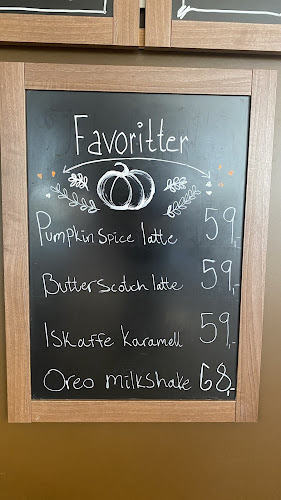 Favoritter
Pumpkin Spice latte 59,-
Butterscotch latte 59,-
Iskaffe Karamell 59,-
Oreo milkshake 68,-